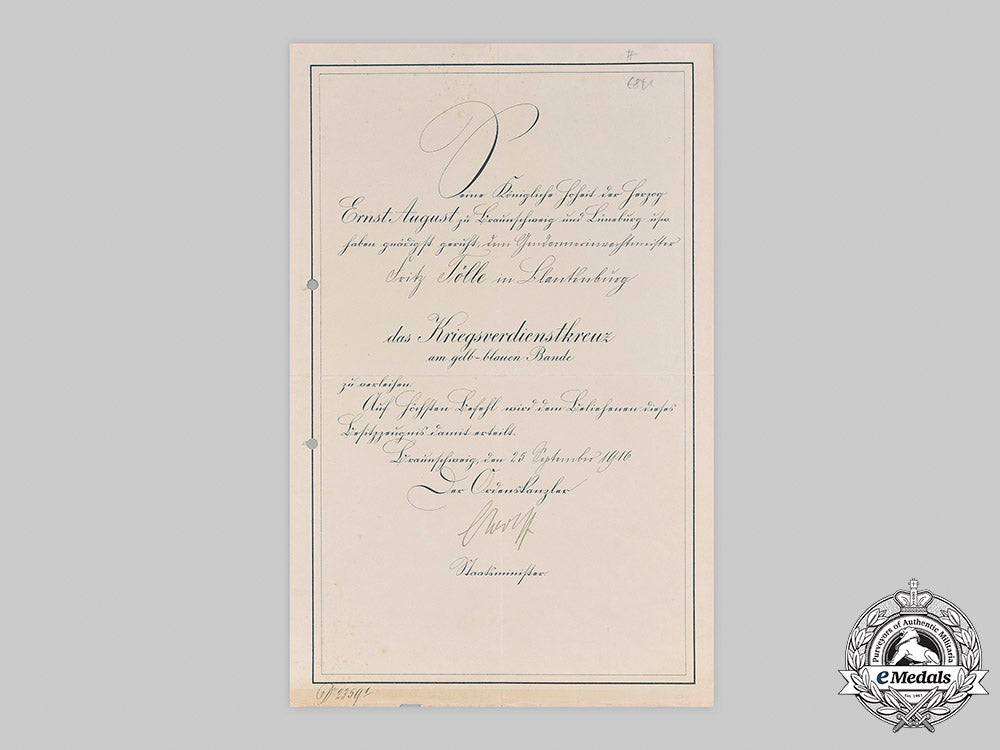 6891
Seine Königliche Hoheit der Herzog
Ernst August zu Braunschweig und Lüneburg usw
haben gnädigst geruht, dem Gendarmeriewachtmeister
Fritz Tölle in Blankenburg
das Kriegsverdienstkreuz
am gelb-blauen Bande
zu verleihen.
Auf Höchsten Befehl wird dem Beliehenen dieses
Besitzzeugnis damit erteilt.
Braunschweig, den 25 September 1916
Der Ordenskanzler
Wolff
Staatsminister.
23591
Purveyors of Authentic Militaria
eMedals